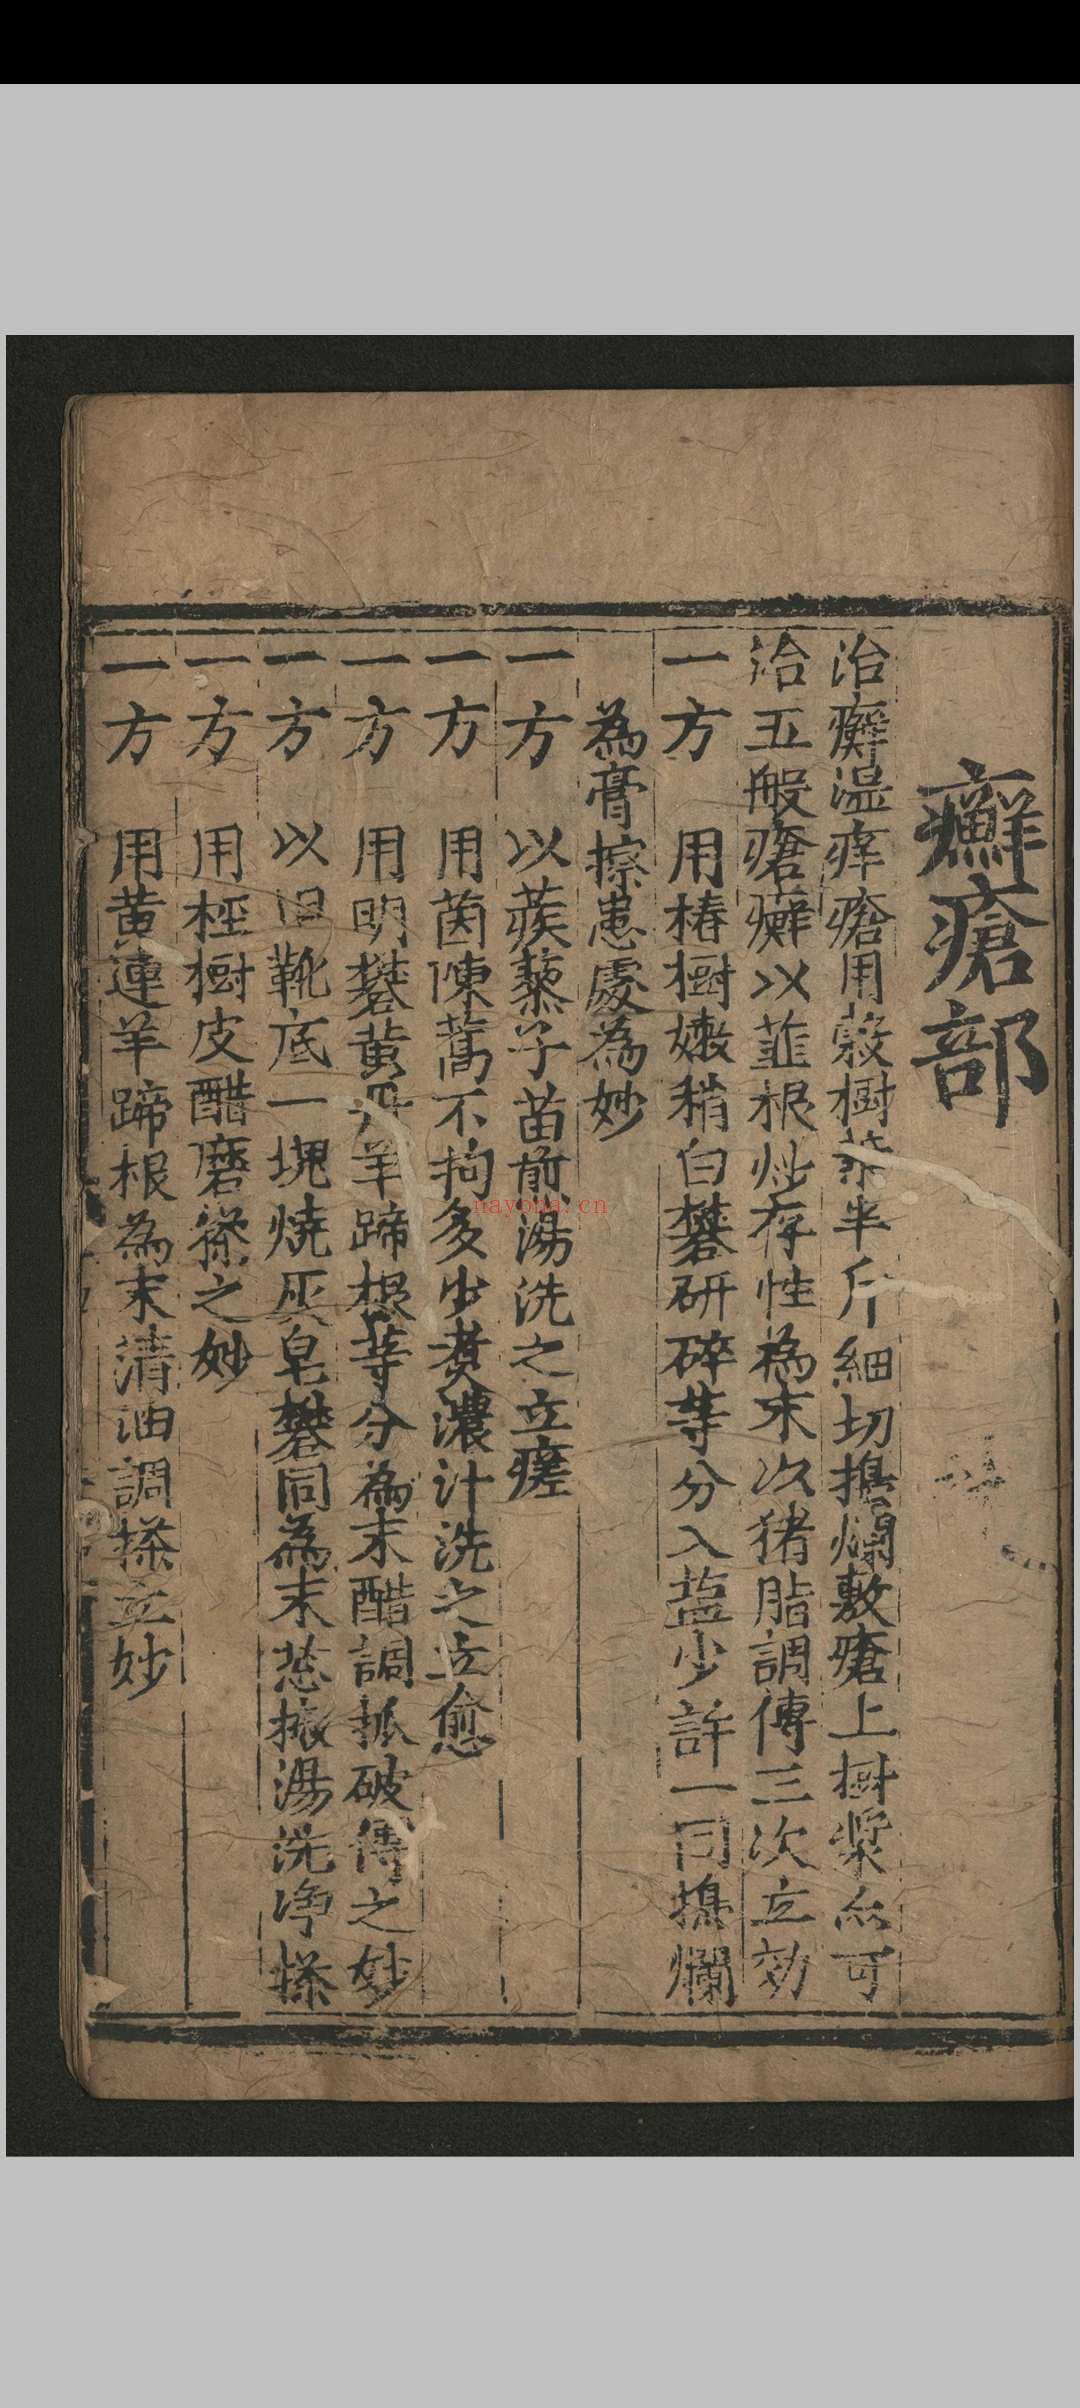 癬瘡部
治癬湿痒瘡用穀樹葉半斤細切搗爛敷瘡上樹漿亦可
治五般瘡癬以韮根炒存性為末次猪脂調傅三次立効
一方 用椿樹嫩稍白礬研碎等分入盐少許一同搗爛
為膏擦患處為妙
一方 以蒺藜子苗煎湯洗之立瘥
一方 用茵陳蒿不拘多少煑濃汁洗之立愈
一方 用明礬黄丹羊蹄根等分為末醋調抓破傅之妙
一方 以旧靴底一塊燒灰皂礬同為末葱椒湯洗净搽
一方 用桱樹皮醋磨搽之妙
一方 用黄連羊蹄根為末清油調搽立妙
nayona.cn